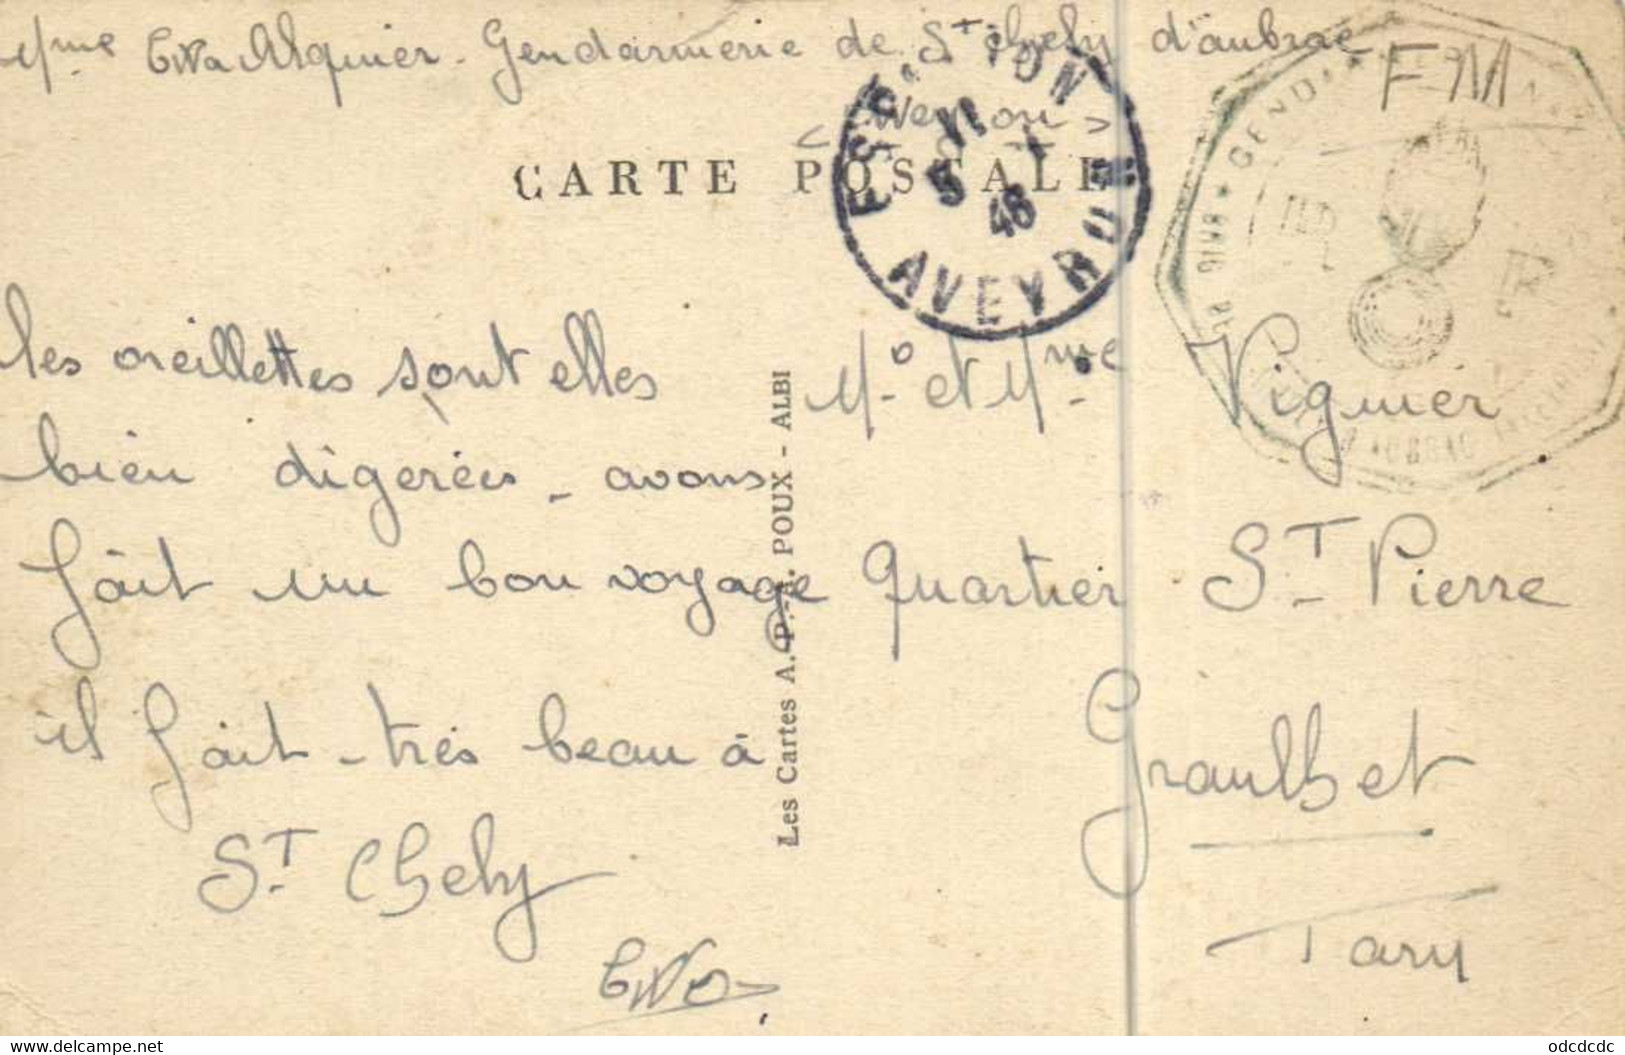 Mme Eva Alquier. Gendarmerie de St Chely d'aubrac
CARTE POSTALE
F M
ESPALION
5 - 11
48
AVEYRON
GENDARMERIE
les oreillettes sont elles
bien digerées - avons
fait un bon voyage
il fait très beau à
St Chely
Eva
Les Cartes A. P.-A. POUX - ALBI
Mr et Mme Viguier
Quartier St Pierre
Graulhet
Tarn